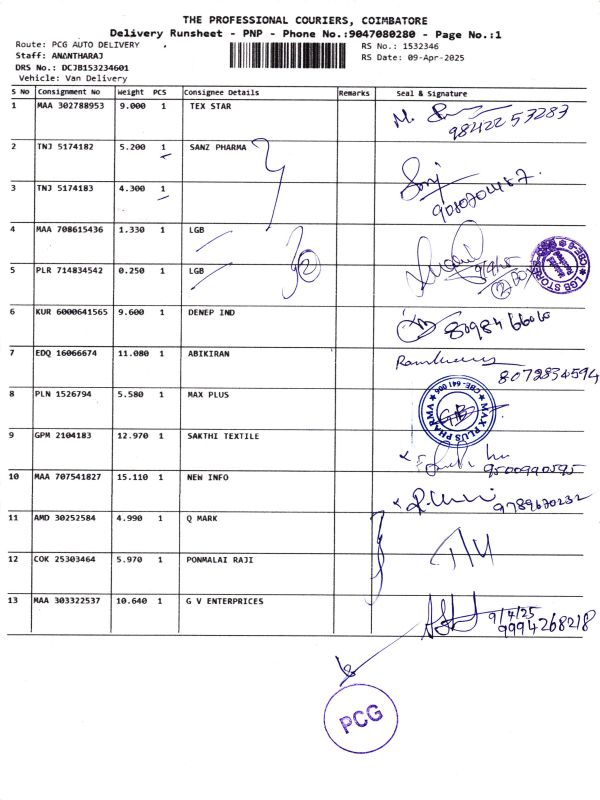 THE PROFESSIONAL COURIERS, COIMBATORE
Delivery Runsheet - PNP - Phone No.:9047080280 - Page No.:1
Route: PCG AUTO DELIVERY RS No.: 1532346
Staff: ANANTHARAJ RS Date: 09-Apr-2025
DRS No.: DCJB153234601
Vehicle: Van Delivery
S No Consignment No Weight PCS Consignee Details Remarks Seal & Signature
1 MAA 302788953 9.000 1 TEX STAR
98422 57283
2 TNJ 5174182 5.200 1 SANZ PHARMA
3 TNJ 5174183 4.300 1
4 MAA 708615436 1.330 1 LGB
9/4/25
5 PLR 714834542 0.250 1 LGB 2
LGB STORES CBE-6
6 KUR 6000641565 9.600 1 DENEP IND
7 EDQ 16066674 11.080 1 ABIKIRAN
8072834594
8 PLN 1526794 5.580 1 MAX PLUS
MAX PLUS PHARMA CBE- 641 006
9 GPM 2104183 12.970 1 SAKTHI TEXTILE
9500990595
10 MAA 707541827 15.110 1 NEW INFO
9789670232
11 AMD 30252584 4.990 1 Q MARK
12 COK 25303464 5.970 1 PONMALAI RAJI
13 MAA 303322537 10.640 1 G V ENTERPRICES
9/4/25
9994268218
PCG